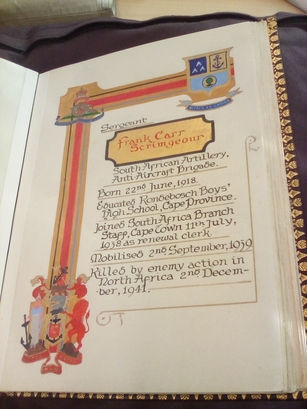 Sergeant
Frank Carr
Scrimgeour.
South African Artillery,
Anti-Aircraft Brigade.
Born 22nd June, 1918.
Educated Rondebosch Boys'
High School, Cape Province.
Joined South Africa Branch
Staff, Cape Town 11th July,
1938 as renewal clerk.
Mobilised 2nd September, 1939
Killed by enemy action in
North Africa 2nd Decem-
ber, 1941.